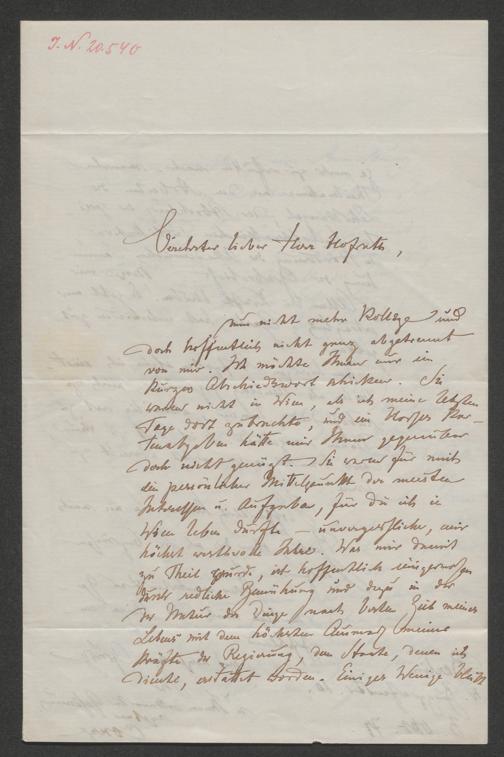 I. N. 20.540
Verehrter lieber Herr Hofrath,
nun nicht mehr Kollege und
doch hoffentlich nicht ganz abgetrennt
von mir. Ich möchte Ihnen nur ein
kurzes Abschiedswort schicken. Sie
waren nicht in Wien, als ich meine letzten
Tage dort zubrachte, und ein bloßes Kar-
tenabgeben hätte mir Ihnen gegenüber
doch nicht genügt. Sie waren für mich
der persönliche Mittelpunkt der meisten
Interessen u. Aufgaben, für die ich in
Wien leben durfte – unvergeßliche, mir
höchst werthvolle Jahre. Was mir damit
zu Theil wurde, ist hoffentlich
durch redliche Bemühung und dazu in der
der Natur der Dinge nach besten Zeit meines
Lebens mit dem höchsten Ausmaß meiner
Kräfte der Regierung, dem Staate, denen ich
diente, erstattet worden. Einiges Wenige bleibt